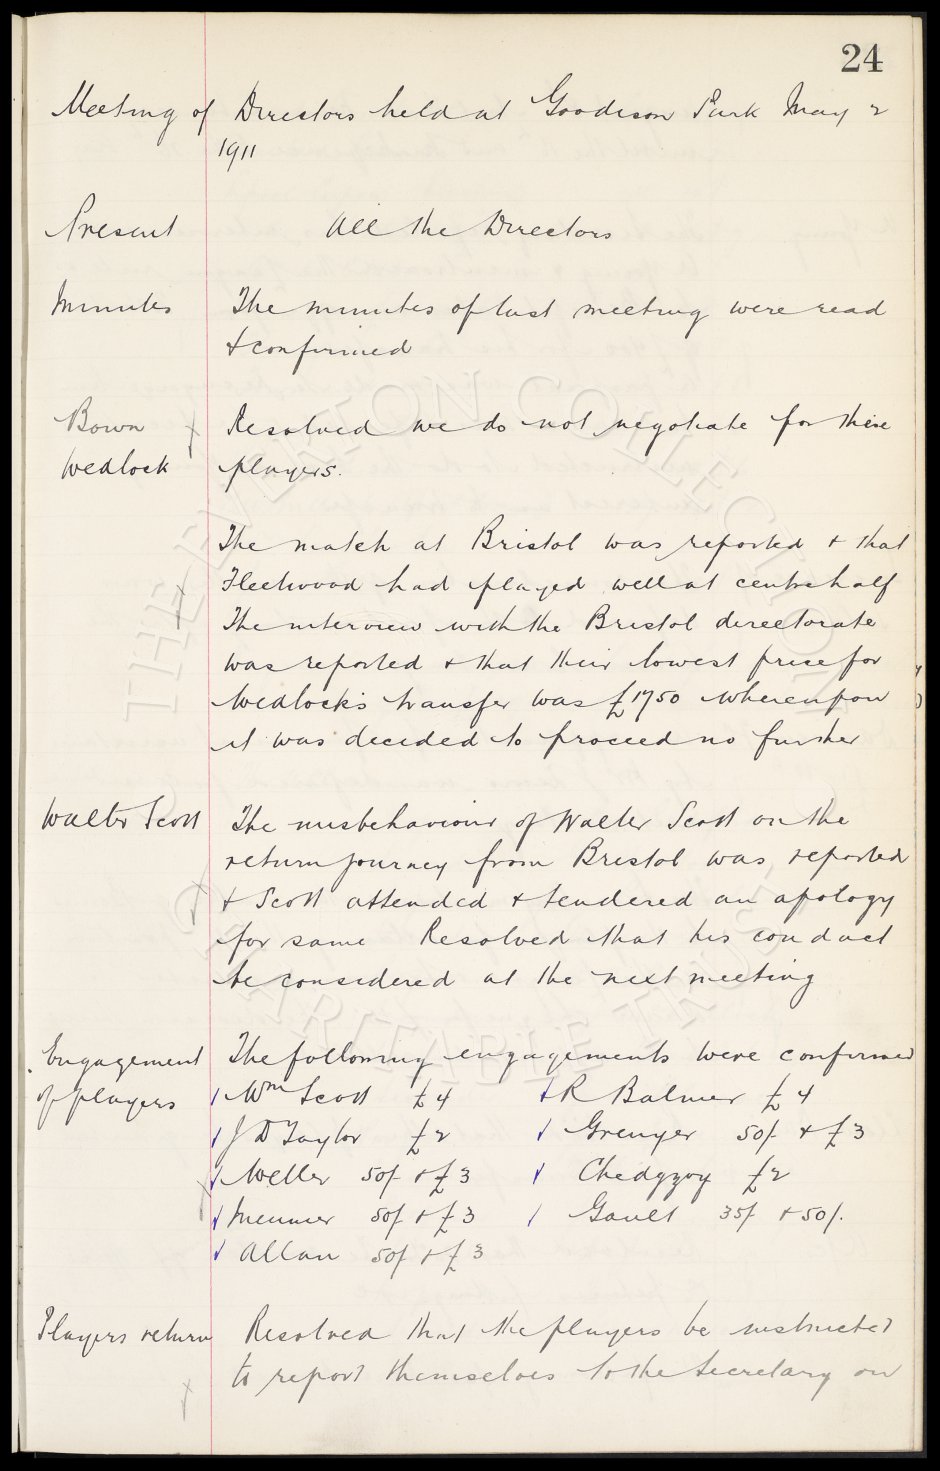 24
Meeting of Directors held at Goodison Park May 2
1911
Present All the Directors
Minutes The minutes of last meeting were read
& confirmed
Bown Resolved we do not negotiate for these
Wedlock players.
The match at Bristol was reported & that
Fleetwood had played well at centre half
The interview with the Bristol directorate
was reported & that their lowest price for
Wedlock's transfer was £1750 whereupon
it was decided to proceed no further
Walter Scott The misbehaviour of Walter Scott on the
return journey from Bristol was reported
& Scott attended & tendered an apology
for same Resolved that his conduct
be considered at the next meeting
Engagement The following engagements were confirmed
of players Wm Scott £4 R Balmer £4
J D Taylor £2 Grenyer 50/- & £3
Weller 50/- & £3 Chedgzoy £2
Meunier 50/- & £3 Gault 35/- & 50/-
Allan 50/- & £3
Players return Resolved that the players be instructed
to report themselves to the Secretary on
THE EVERTON COLLECTION
CHARITABLE TRUST